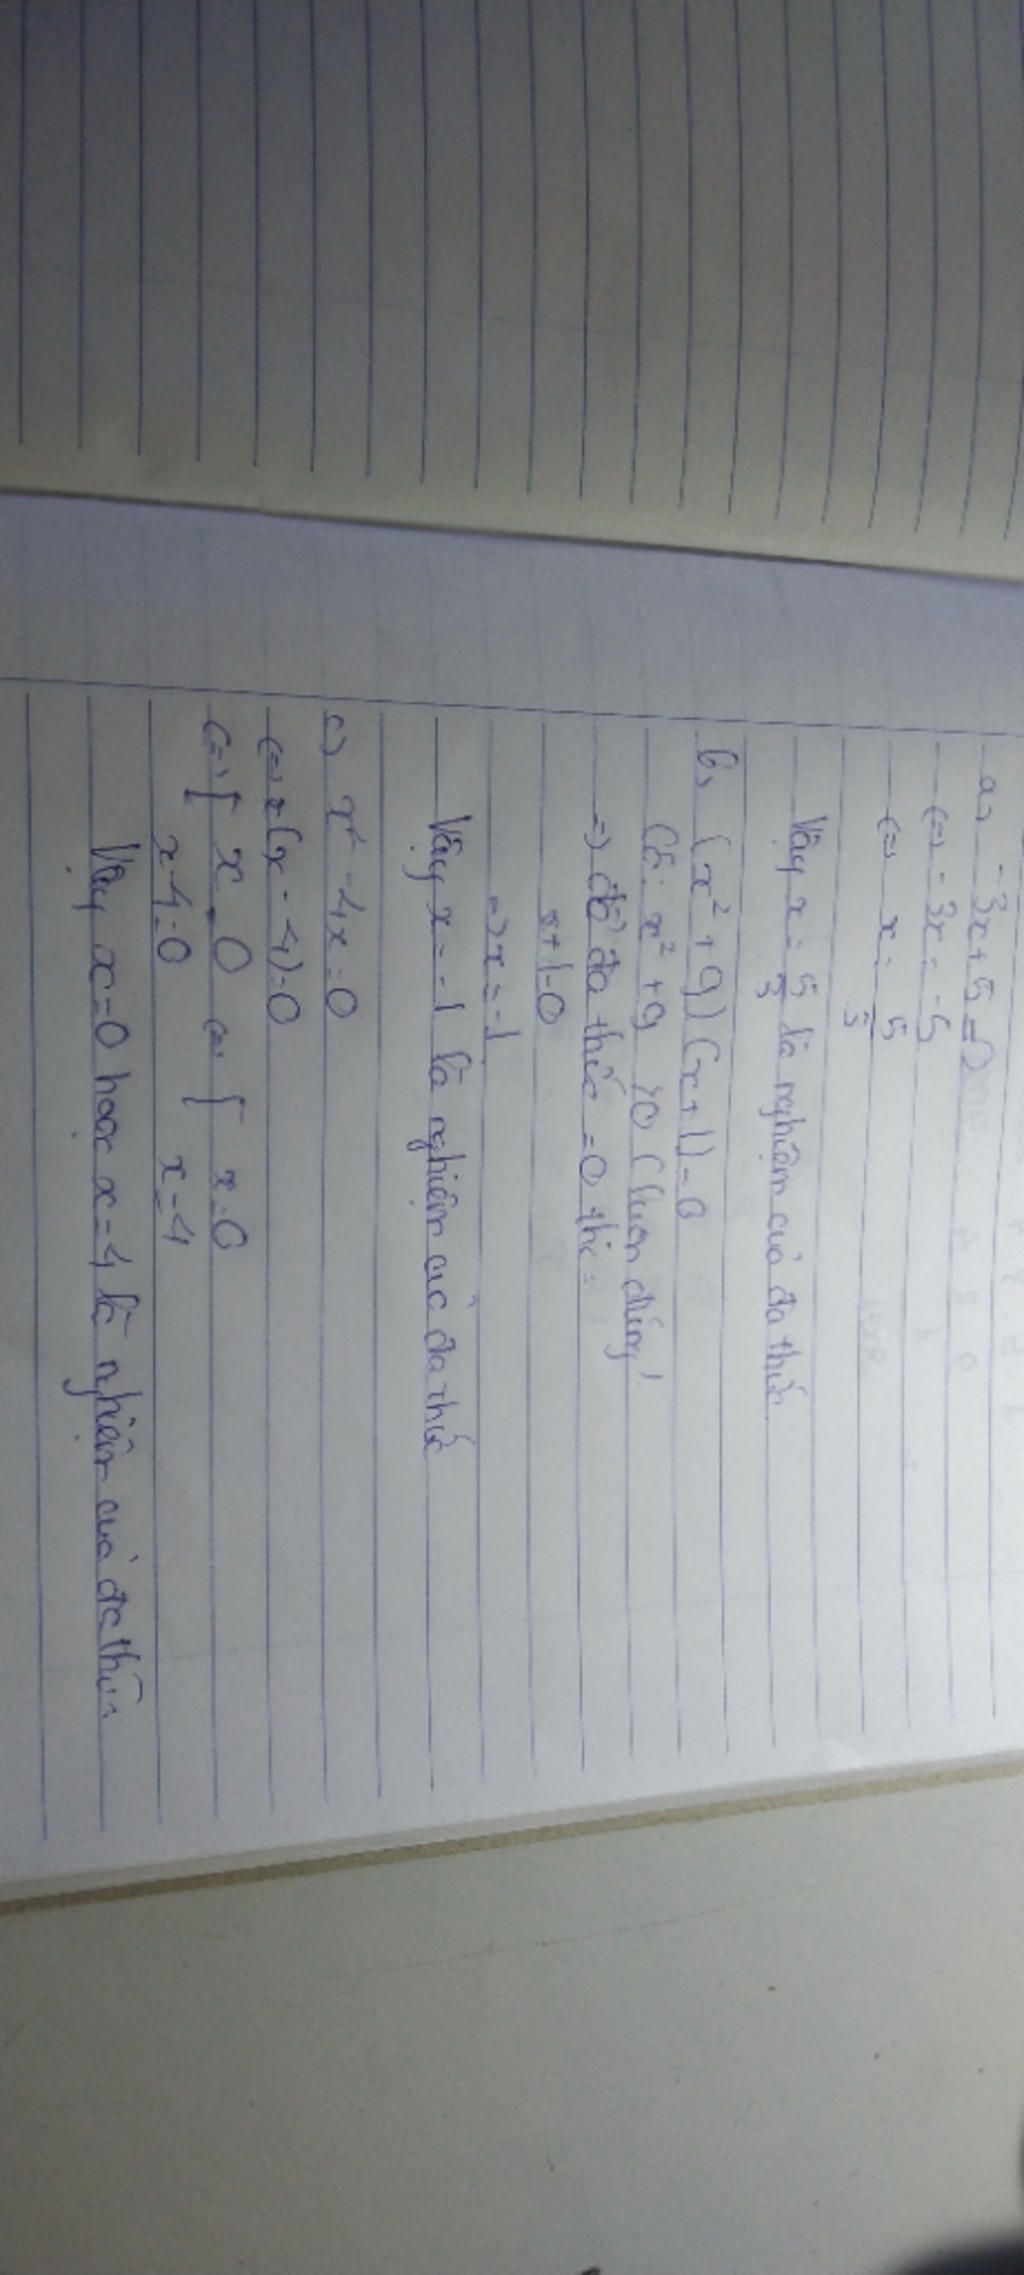 a, -3x+5=0
<=> -3x=-5
<=> x= 5/3
Vậy x= 5/3 là nghiệm của đa thức
b, (x²+9)(x+1)=0
Có: x²+9 >0 (luôn đúng)
=> để đa thức =0 thì:
x+1=0
=> x=-1
Vậy x=-1 là nghiệm của đa thức
c, x²-4x=0
<=> x(x-4)=0
<=> [ x=0 <=> [ x=0
x-4=0 x=4
Vậy x=0 hoặc x=4 là nghiệm của đa thức